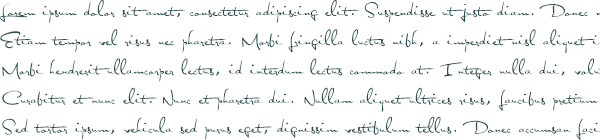 Lorem ipsum dolor sit amet, consectetur adipiscing elit. Suspendisse ut justo diam. Donec
Etiam tempor vel risus nec pharetra. Morbi fringilla luctus nibh, a imperdiet nisl aliquet
Morbi hendrerit ullamcorper lectus, id interdum lectus commodo at. Integer nulla dui,
Curabitur et nunc elit. Nunc et pharetra dui. Nullam aliquet ultrices risus, faucibus pretium
Sed tortor ipsum, vehicula sed purus eget, dignissim vestibulum tellus. Donec accumsan